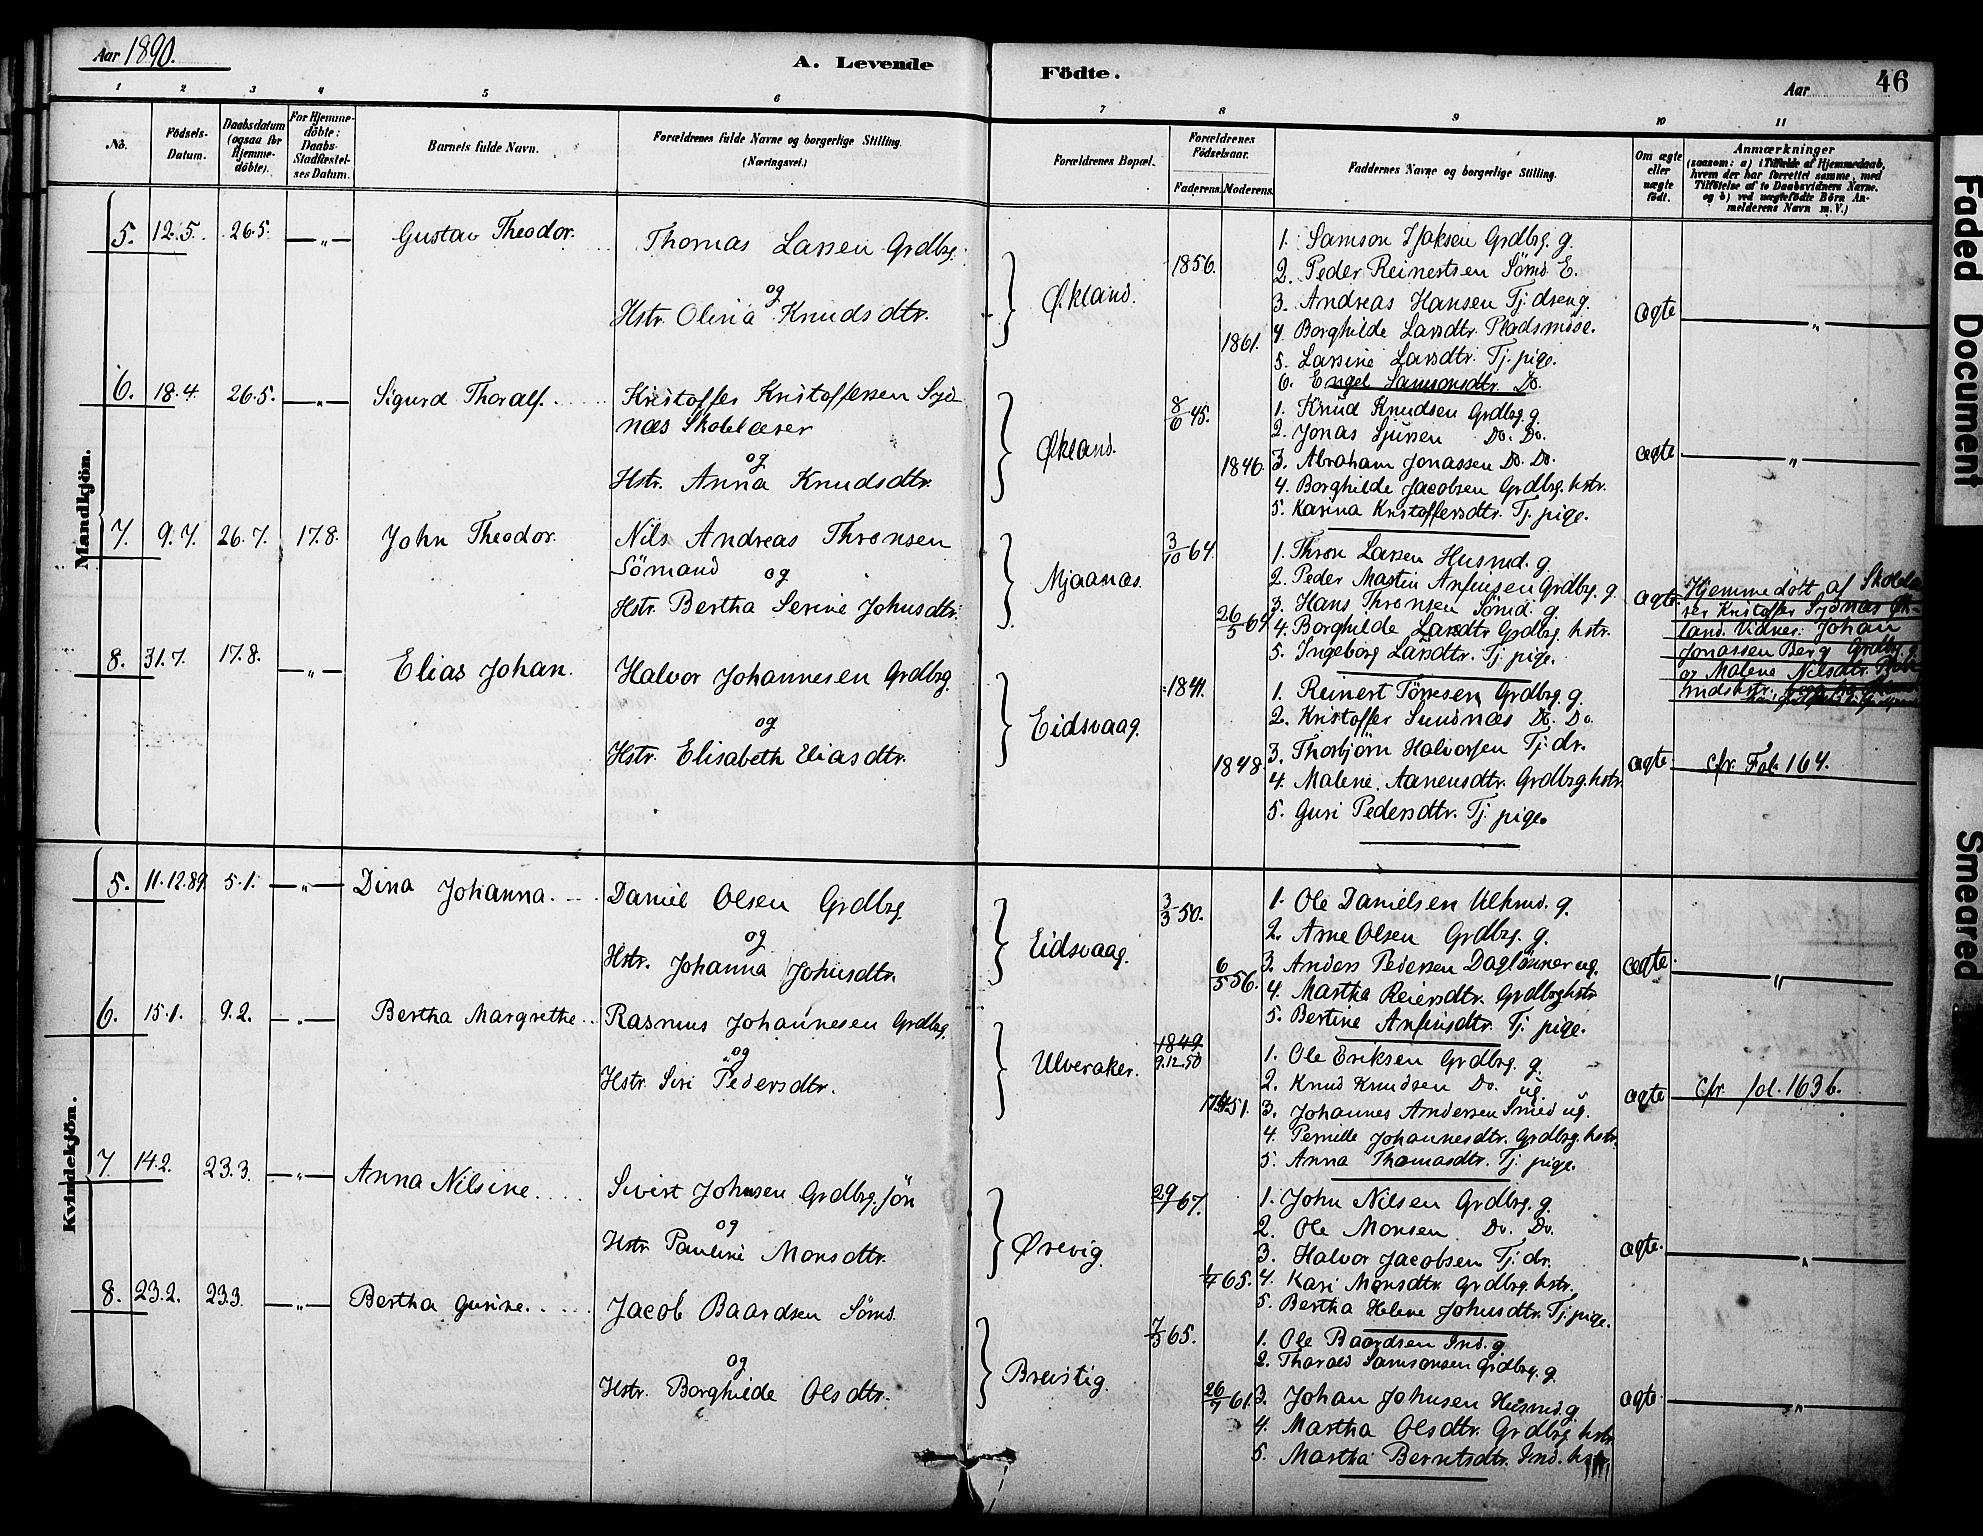 Aar 1890. A. Levende Födte. Aar 46
1 2 3 4 5 6 7 8 9 10 11
No. Födsels-Datum. Daabsdatum (ogsaa for Hjemme-döbte). For Hjemme-döbte: Daabs-Stadfæstel-ses Datum. Barnets fulde Navn. Forældrenes fulde Navne og borgerlige Stilling. (Næringsvei.) Forældrenes Bopæl. Forældrenes Födselsaar. Faderens. Moderens. Faddernes Navne og borgerlige Stilling. Om ægte eller uægte födt.
Anmærkninger
(saasom: a) i Tilfælde af Hjemmedaab,
hvem der har forrettet samme, med
Tilföielse af to Daabsvidners Navne.
og b) ved uægtefödte Börn An-
melderens Navn m. V.)
Mandkjön.
5. 12.5. 26.5. — „ — Gustav Theodor. Thomas Larsen Grdbrg.
og
Hstr. Olina Knudsdtr.
Økland. 1856. 1861.
1. Samson Isaksen Grdbrg. g.
2. Peder Reinertsen Sömd. E.
3. Andreas Hansen Tj. dreng.
4. Borghilde Larsdtr. Pladsmöe.
5. Larsine Larsdtr. Tj. pige.
6. Engel Samsonsdtr. Do.
ægte „
6. 18.4. 26.5. — „ — Sigurd Thoralf. Kristoffer Kristoffersen Syd-
næs Skolelærer
og
Hstr. Anna Knudsdtr.
Økland. 8/6 45. 1846.
1. Knud Knudsen Grdbrg. g.
2. Jonas Sjursen Do. Do.
3. Abraham Jonassen Do. Do.
4. Borghilde Jacobsen Grdbrg. hstr.
5. Karina Kristoffersdtr. Tj. pige.
ægte „
7. 9.7. 26.7. 17.8. John Theodor. Nils Andreas Thronsen
Sömand og
Hstr. Bertha Serine Johnsdtr.
Mjaanæs. 3/10 64. 26/5 69.
1. Thron Larsen Husmd. g.
2. Peder Martin Anfinsen Grdbrg. g.
3. Hans Thronsen Sömd. g.
4. Borghilde Larsdtr. Grdbrg. hstr.
5. Ingeborg Larsdtr. Tj. pige.
ægte.
Hjemmedöbt af Skolelæ-
rer Kristoffer Sydnæs Øk-
land. Vidner: Johan
Jonassen Berg Grdbrg. g.
og Malene Nilsdtr.
8. 31.7. 17.8. — „ — Elias Johan. Halvor Johannesen Grdbrg.
og
Hstr. Elisabeth Eliasdtr.
Eidsvaag. 1841. 1848.
1. Reinert Tönnesen Grdbrg. g.
2. Kristoffer Sundnæs Do. Do.
3. Thorbjörn Halvorsen Tj. dr.
4. Malene Aanensdtr. Grdbrg. hstr.
5. Guri Pedersdtr. Tj. pige.
ægte. cfr. Fol. 164.
Kvindekjön.
5. 11.12.89. 5.1. — „ — Dina Johanna. Daniel Olsen Grdbrg.
og
Hstr. Johanna Johnsdtr.
Eidsvaag. 3/3 50. 6/5 56.
1. Ole Danielsen Ulkmd. g.
2. Arne Olsen Grdbrg. g.
3. Anders Pedersen Daglönner ug.
4. Martha Reiersdtr. Grdbrg hstr.
5. Bertine Anfinsdtr. Tj. pige.
ægte. „
6. 15.1. 9.2. — „ — Bertha Margrethe. Rasmus Johannesen Grdbrg.
og
Hstr. Siri Pedersdtr.
Ulveraker. 1849. 9.12.50 51.
1. Ole Eriksen Grdbrg. g.
2. Knud Knudsen Do. ug.
3. Johannes Andersen Smed ug.
4. Pernille Johannesdtr. Grdbrg. hstr.
5. Anna Thomasdtr. Tj. pige.
ægte cfr. fol. 163 b.
7. 14.2. 23.3. — „ — Anna Nilsine. Sivert Johnsen Grdbrg. sön
og
Hstr. Pauline Monsdtr.
Ørevig. 29/ 67. 1/4 65.
1. John Nilsen Grdbrg. g.
2. Ole Monsen. Do. Do.
3. Halvor Jacobsen Tj. dr.
4. Kari Monsdtr. Grdbrg. hstr.
5. Bertha Helene Johnsdtr. Tj. pige.
ægte. „
8. 23.2. 23.3. — „ — Bertha Gurine. Jacob Baardsen Sömd.
og
Hstr. Borghilde Olsdtr.
Breistig. 7/3 65. 26/7 61.
1. Ole Baardsen Ind. g.
2. Thorald Samsonsen Grdbrg. g.
3. Johan Johnsen Husmd. g.
4. Martha Olsdtr. Grdbrg. hstr.
5. Martha Berntsdtr. Ind. hstr.
ægte. „
Faded Document
Smeared